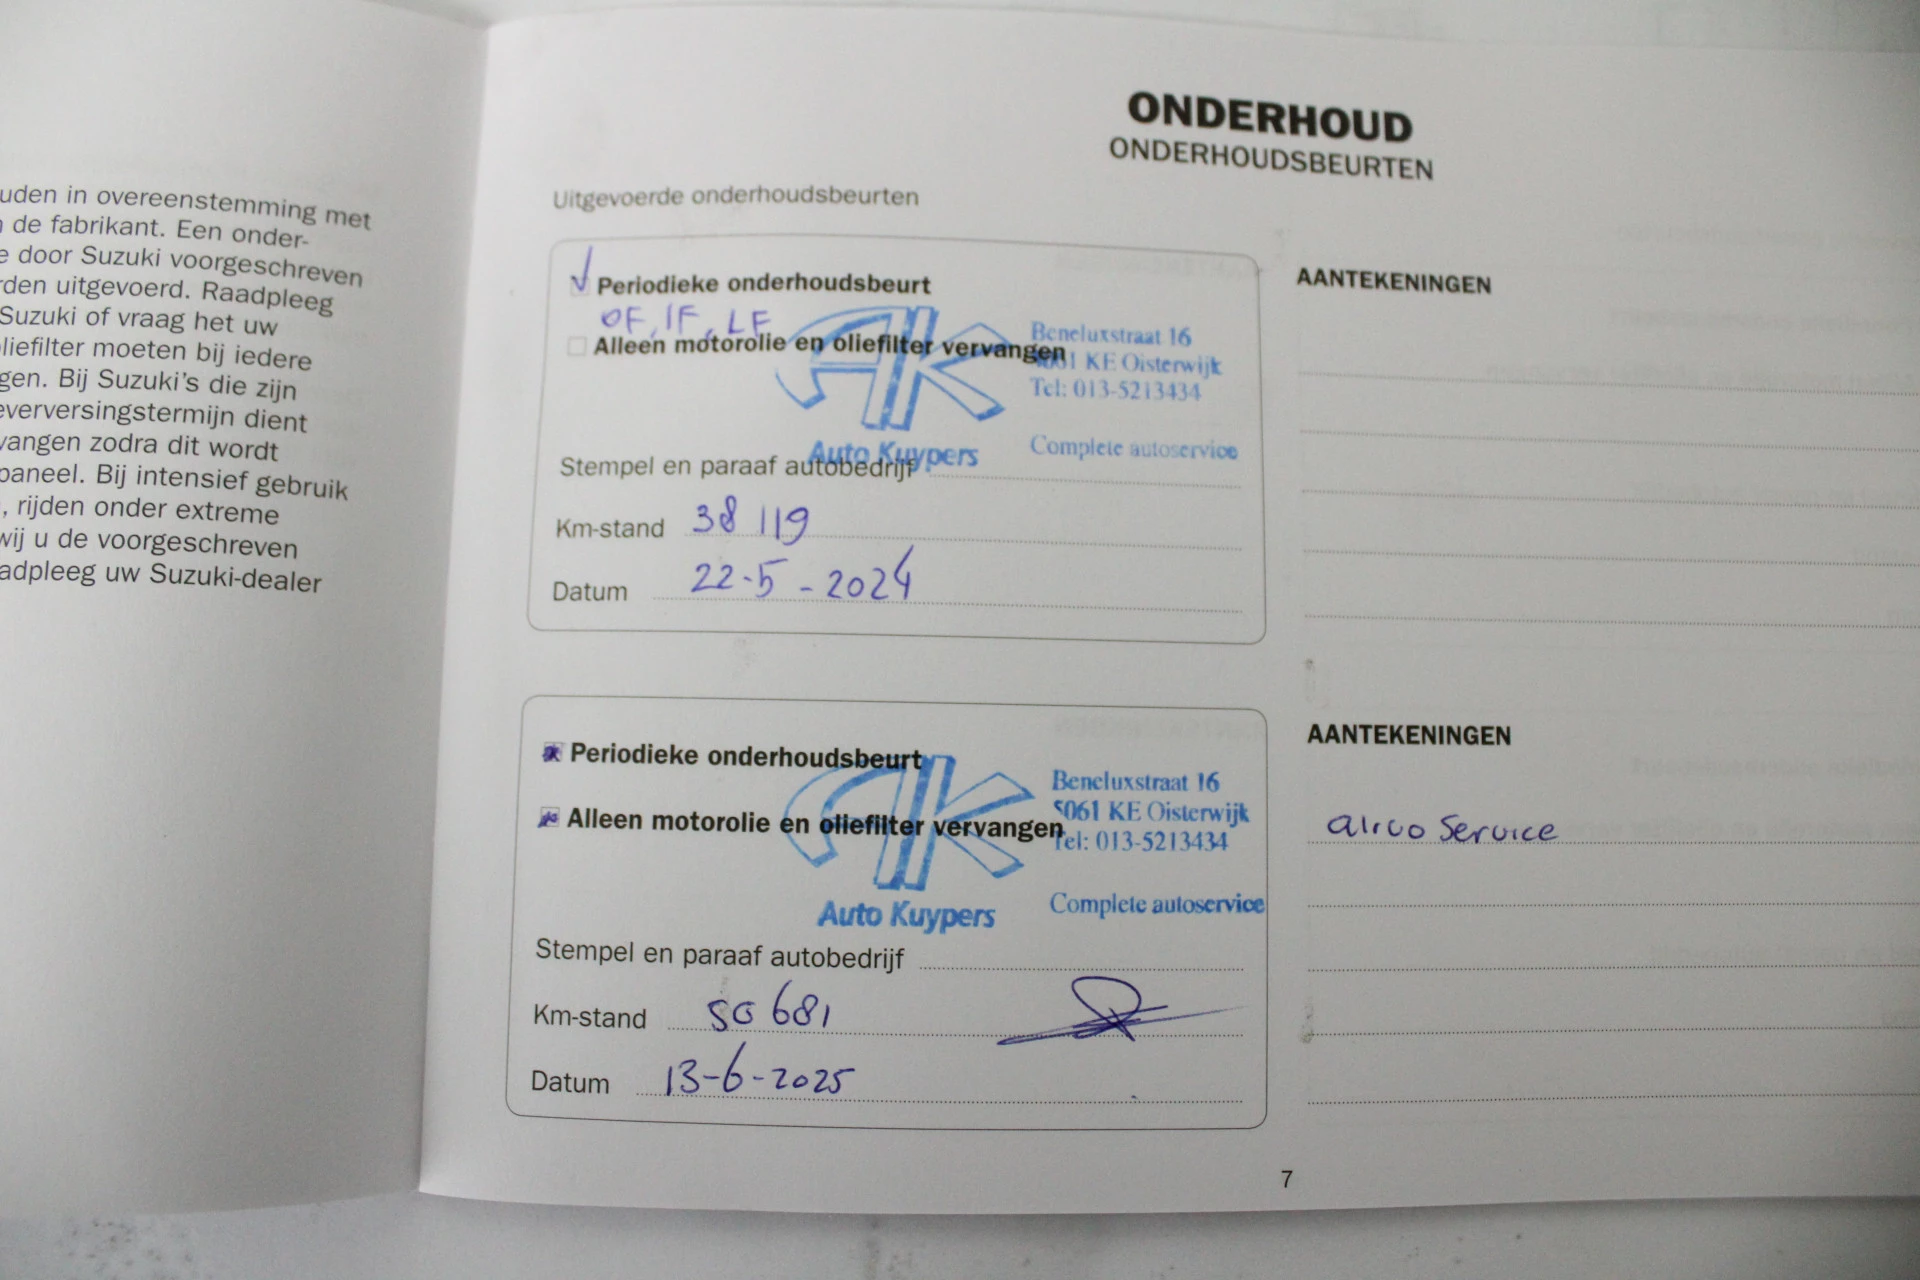 uden in overeenstemming met
de fabrikant. Een onder-
e door Suzuki voorgeschreven
rden uitgevoerd. Raadpleeg
Suzuki of vraag het uw
liefilter moeten bij iedere
gen. Bij Suzuki's die zijn
everversingstermijn dient
vangen zodra dit wordt
paneel. Bij intensief gebruik
, rijden onder extreme
wij u de voorgeschreven
adpleeg uw Suzuki-dealer
ONDERHOUD
ONDERHOUDSBEURTEN
Uitgevoerde onderhoudsbeurten
Periodieke onderhoudsbeurt
OF, IF, LF
Alleen motorolie en oliefilter vervangen
AK
Auto Kuypers
Beneluxstraat 16
5061 KE Oisterwijk
Tel: 013-5213434
Complete autoservice
Stempel en paraaf autobedrijf
Km-stand 38 119
Datum 22-5-2024
AANTEKENINGEN
Periodieke onderhoudsbeurt
Alleen motorolie en oliefilter vervangen
AK
Auto Kuypers
Beneluxstraat 16
5061 KE Oisterwijk
Tel: 013-5213434
Complete autoservice
Stempel en paraaf autobedrijf
Km-stand 50 681
Datum 13-6-2025
AANTEKENINGEN
airco Service
7